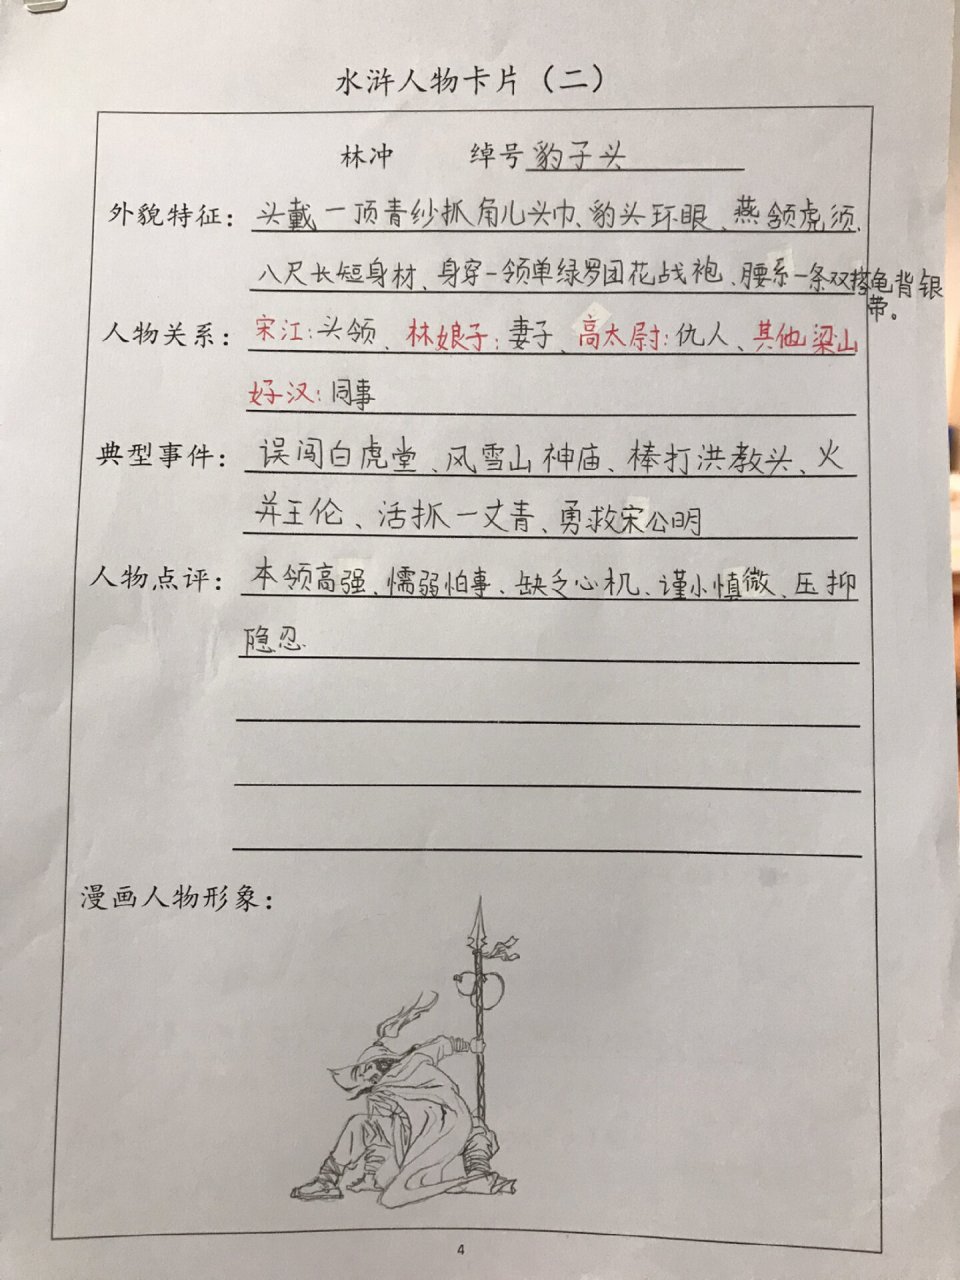 水浒人物卡片（二）
林冲 绰号 豹子头
外貌特征：头戴一顶青纱抓角儿头巾、豹头环眼、燕颔虎须、
八尺长短身材、身穿一领单绿罗团花战袍、腰系一条双搭龟背银
带。
人物关系：宋江：头领、林娘子：妻子、高太尉：仇人、其他梁山
好汉：同事
典型事件：误闯白虎堂、风雪山神庙、棒打洪教头、火
并王伦、活抓一丈青、勇救宋公明
人物点评：本领高强、懦弱怕事、缺乏心机、谨小慎微、压抑
隐忍
漫画人物形象：
4